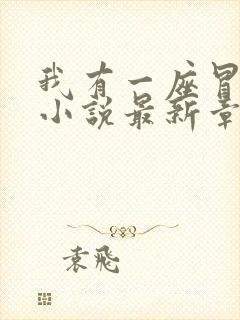 我有一座冒
小说最新章
袁飛